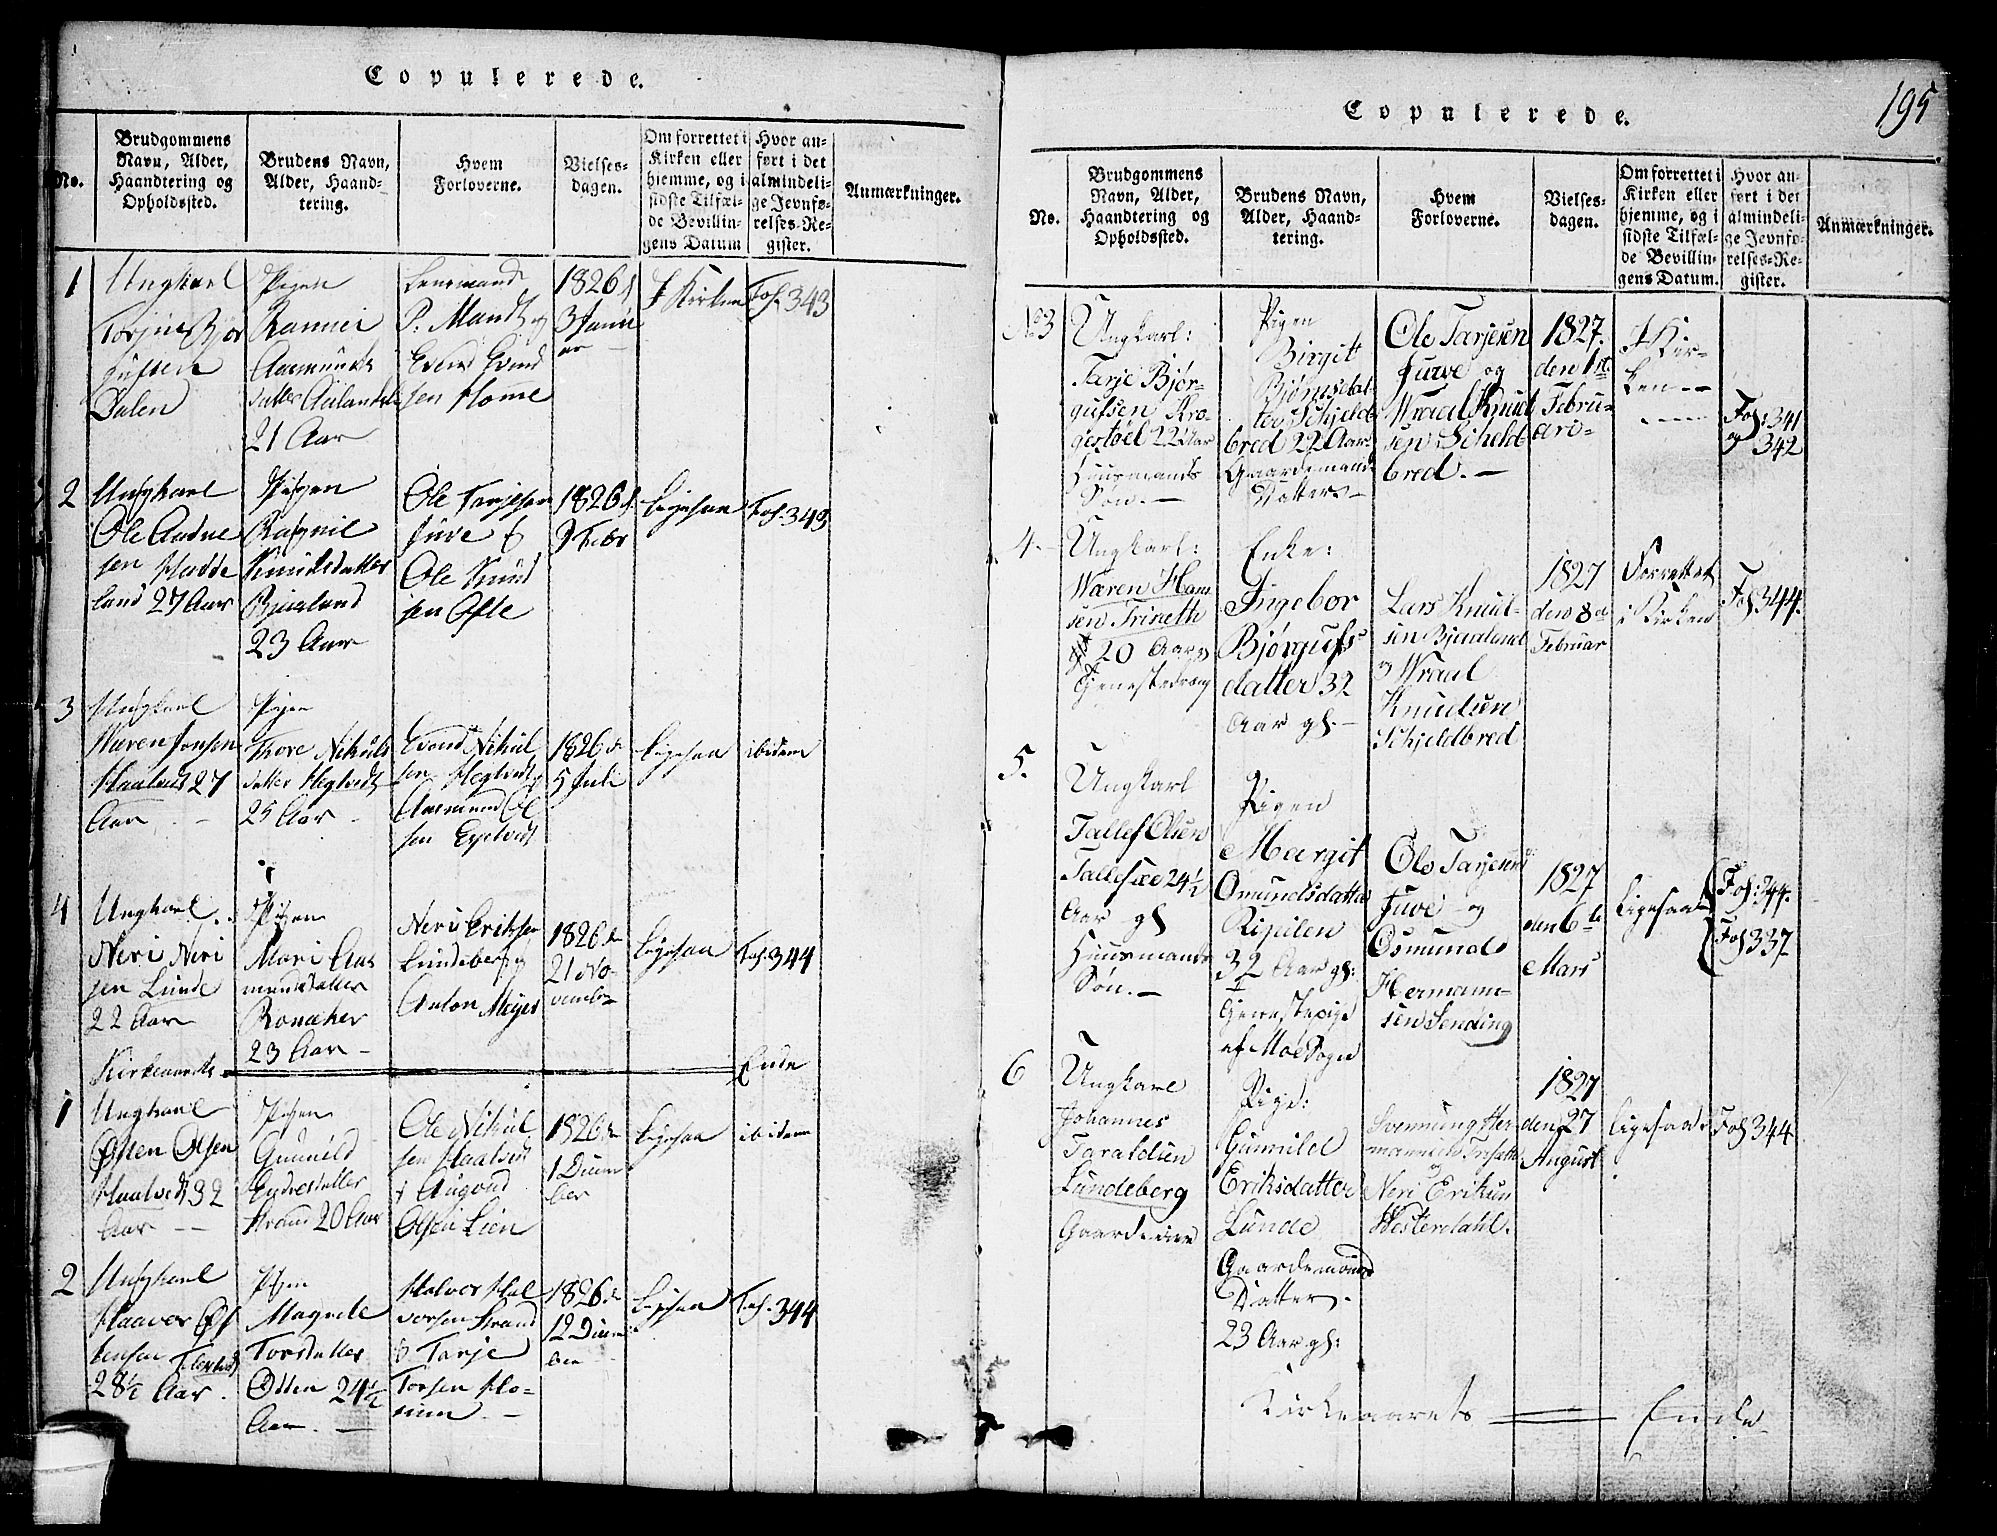 Copulerede.
No.
Brudgommens
Navn, Alder,
Haandtering og
Opholdssted.
Brudens Navn,
Alder, Haand-
tering.
Hvem
Forloverne.
Vielses-
dagen.
Om forrettet i
Kirken eller
hjemme, og i
sidste Tilfæl-
de Bevillin-
gens Datum
Hvor an-
ført i det
almindeli-
ge Jevnfø-
relses-Re-
gister.
Anmærkninger.
1
Ungkarl
Dalen
Pigen
Rannei
Aasmunds
datter
21 Aar
Lensmand
P. Mandt og
Evend Evend
sen Homme
1826 d
3 Janu
ar
I Kirken
Fol. 343
2
Ungkarl
Ole Aadne
sen Hadde
land 27 Aar
Pigen
Ragnil
Knudsdatter
Bjaaland
23 Aar
Ole Tarjesen
Juve &
Ole Knud
sen Ofte
1826 d.
9 Febr
Ligesaa
Fol. 343
3
Ungkarl
Wæren Jonsen
Haaland 27
Aar
Pigen
Thore Nikuls
datter Hegtvedt
25 Aar
Evend Nikul
sen Hegtvedt
Aasmund Ol
sen
1826 d.
5 Juli
Ligesaa
ibidem
4
Ungkarl
Neri Neri
sen Lunde
22 Aar
Pigen
Mari Aas
mundsdatter
23 Aar
Neri Eriksen
Lundeberg
Anton Meyer
1826 den
21 No-
vember
Ligesaa
Fol. 344
Kirkeaarets
Ende
1
Ungkarl
Østen Olsen
Haatvedt 32
Aar
Pigen
Gunnild
datter
Strand 20 Aar
Ole Nikul
sen Haatvedt
& Augond
Olsen Lien
1826 den
1 Decem
ber
Ligesaa
ibidem
2
Ungkarl
Haavor Øs
tensen
28½ Aar
Pigen
Magnele
Torsdatter
Otten 24½
Aar
Halvor Hal
vorsen Strand
& Tarje
Torsen Mo-
1826 den
12 Decem
ber
Ligesaa
Fol. 344
195
Copulerede.
No.
Brudgommens
Navn, Alder,
Haandtering og
Opholdssted.
Brudens Navn,
Alder, Haand-
tering.
Hvem
Forloverne.
Vielses-
dagen.
Om forrettet i
Kirken eller
hjemme, og i
sidste Tilfæl-
de Bevillin-
gens Datum.
Hvor an-
ført i det
almindeli-
ge Jevnfø-
relses-Re-
gister.
Anmærkninger.
No 3
Ungkarl:
Tarje Bjør-
gufsen Kro-
gestøel 22 Aar
Huusmands
Søn.
Pigen
Birgit
Bjørnsdat-
ter Schjeld-
bred 22 Aar
Gaardemands
Datter
Ole Tarjesen
Juve og
Wraal Knud
sen Scheld
bred.
1827.
den 1ste
Febru-
ari
I Kir-
ken
Fol: 341
og 342
4.
Ungkarl:
Wæren Han
sen Trineth
20 Aar
Tjenestedreng
Enke:
Ingebor
Bjørgufs-
datter 32
Aar gl.
Lars Knud-
sen Bjaaland
og Wraal
Knudsen
Schjeldbred
1827
den 8de
Februar
Forrettet
i Kirken
Fol 344.
5.
Ungkarl
Tallef Olsen
24½
Aar gl
Huusmands
Søn.
Pigen
Margit
Omundsdatter
32 Aar gl:
Tjenestepige
af Moe Sogn
Ole Tarjesen
Juve og
Osmund
Herman-
sen Sending
1827
den 6te
Mars
Ligesaa
Fol: 344.
Fol 337.
6
Ungkarl
Johannes
Taraldsen
Lundeberg
Pige:
Gunnild
Eriksdatter
Lunde
Gaardemands
Datter.
23 Aar gl:
Svenning Her-
Neri Eriksen
Westerdahl.
1827
den 27
August
Ligesaa
Fol 344
Kirkeaarets
Ende